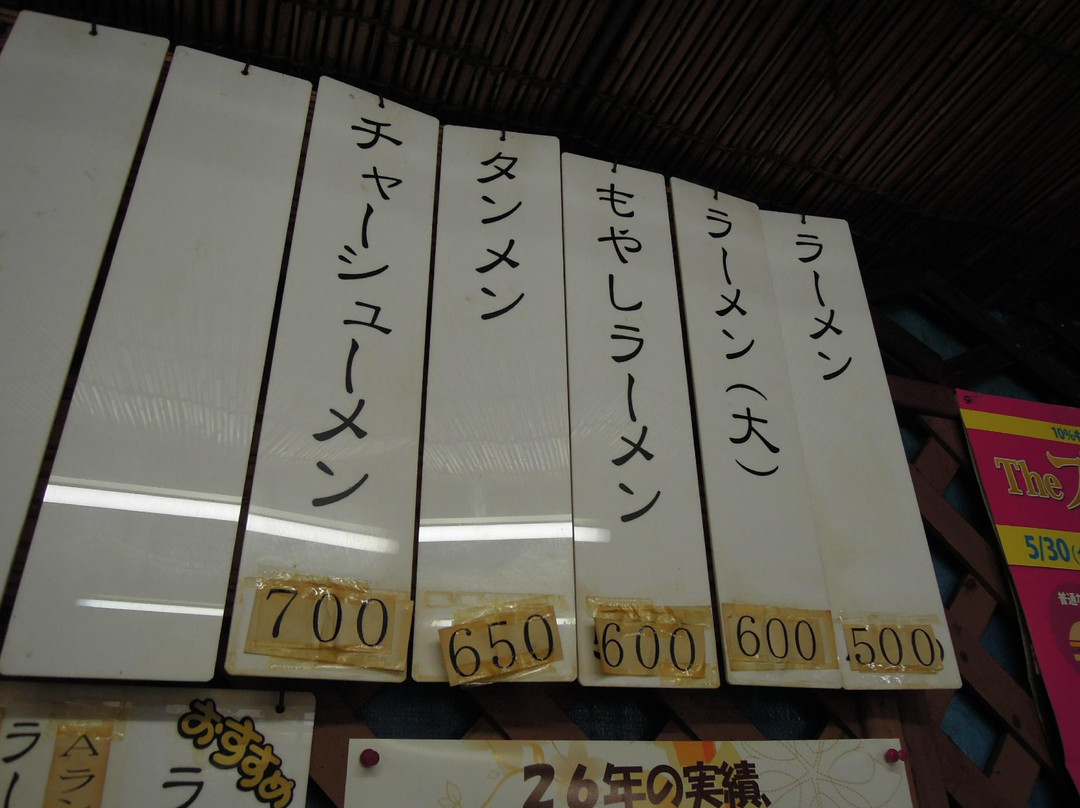 ラーメン
500
ラーメン(大)
600
もやしラーメン
600
タンメン
650
チャーシューメン
700
10%
The
5/30(
普通
おすすめ
ラ
Aラン
ラー
26年の実績、